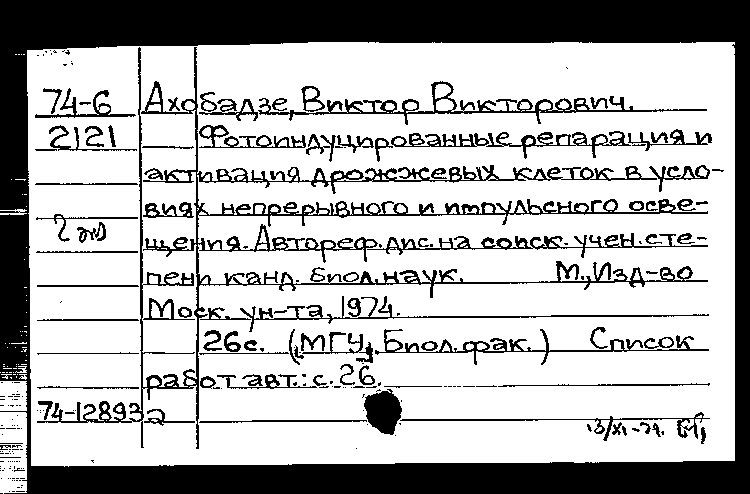 74-6 Ахобадзе, Виктор Викторович.
2121 Фотоиндуцированные репарация и
активация дрожжевых клеток в усло-
виях непрерывного и импульсного осве-
2 экз
щения. Автореф. дис. на соиск. учен. сте-
пени канд. биол. наук. М., Изд-во
Моск. ун-та, 1974.
26с. (МГУ. Биол. фак.) Список
работ авт.: с. 26.
74-12893а
13/XI-74.